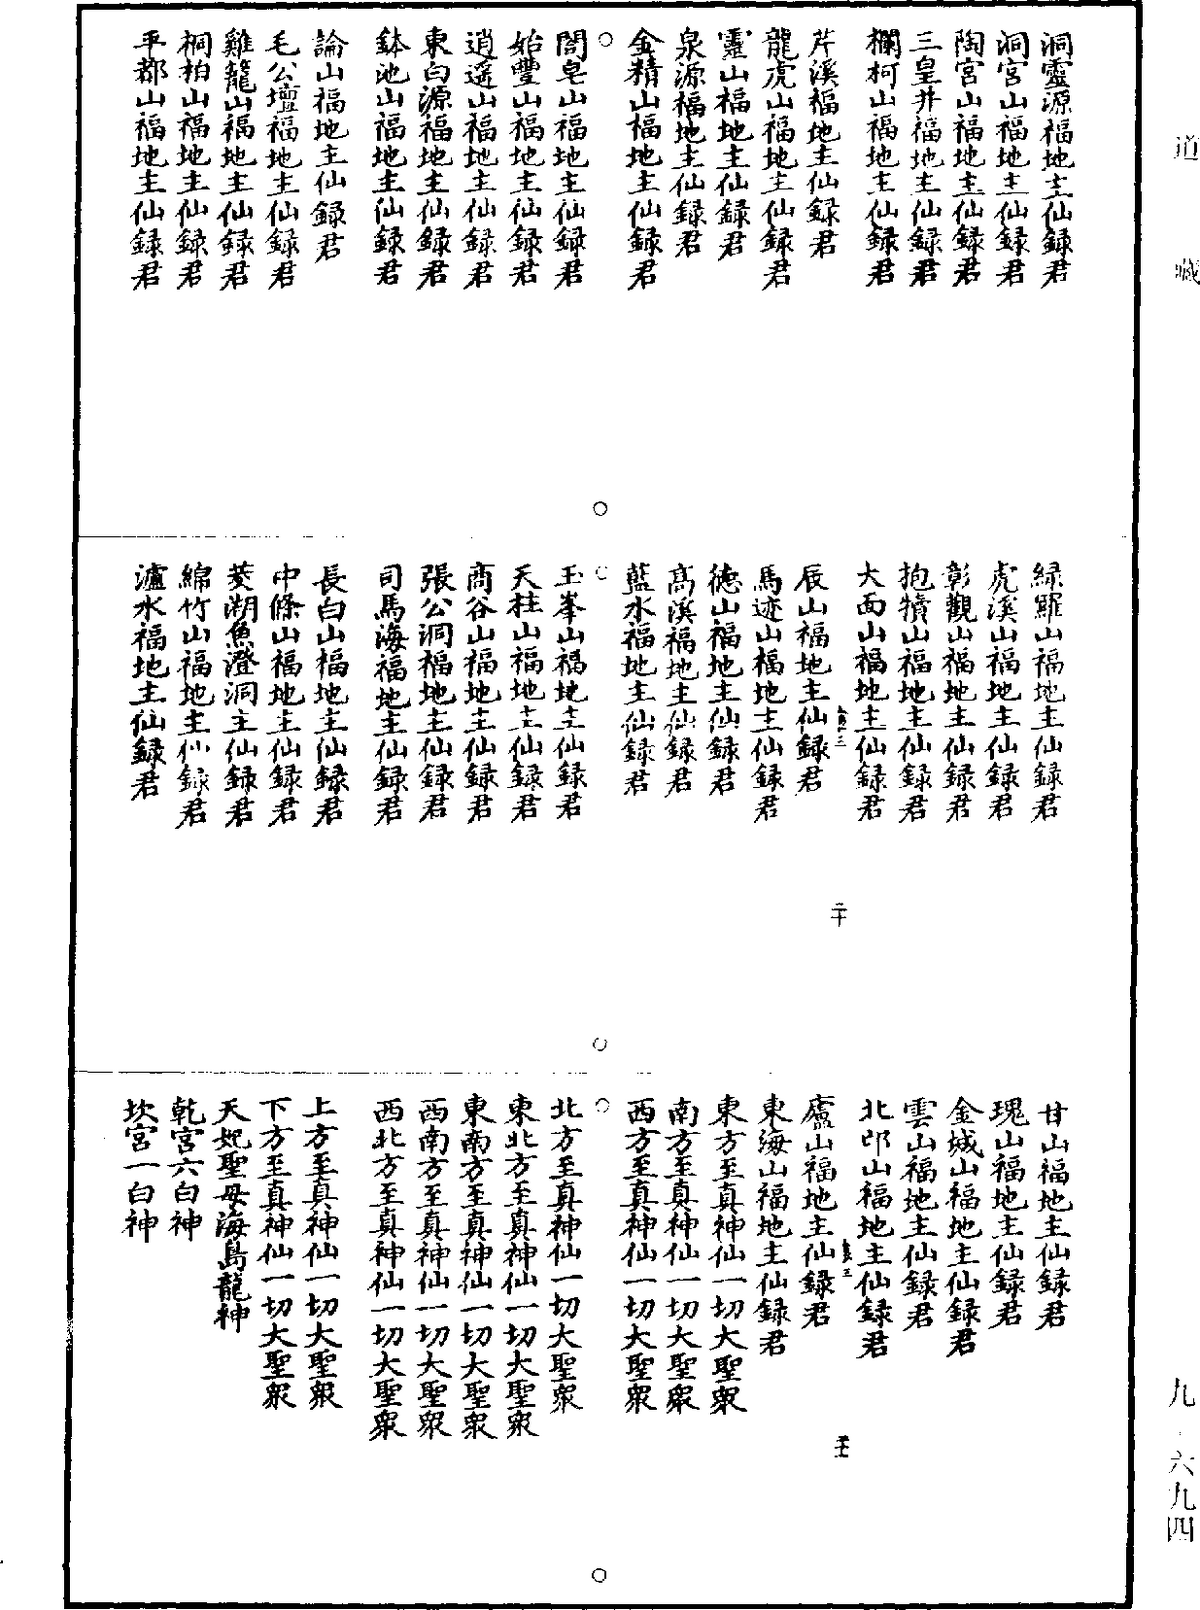 道藏
洞靈源福地主仙錄君
洞宮山福地主仙錄君
陶宮山福地主仙錄君
三皇井福地主仙錄君
欄柯山福地主仙錄君
芹溪福地主仙錄君
龍虎山福地主仙錄君
靈山福地主仙錄君
泉源福地主仙錄君
金精山福地主仙錄君
閤皂山福地主仙錄君
始豐山福地主仙錄君
逍遥山福地主仙錄君
東白源福地主仙錄君
鉢池山福地主仙錄君
論山福地主仙錄君
毛公壇福地主仙錄君
雞籠山福地主仙錄君
桐柏山福地主仙錄君
平都山福地主仙錄君
綠羅山福地主仙錄君
虎溪山福地主仙錄君
彰觀山福地主仙錄君
抱犢山福地主仙錄君
大面山福地主仙錄君
二十
辰山福地主仙錄君
馬迹山福地主仙錄君
德山福地主仙錄君
高溪福地主仙錄君
藍水福地主仙錄君
玉峯山福地主仙錄君
天柱山福地主仙錄君
商谷山福地主仙錄君
張公洞福地主仙錄君
司馬海福地主仙錄君
長白山福地主仙錄君
中條山福地主仙錄君
茭湖魚澄洞主仙錄君
綿竹山福地主仙錄君
瀘水福地主仙錄君
甘山福地主仙錄君
瑰山福地主仙錄君
金城山福地主仙錄君
雲山福地主仙錄君
北邙山福地主仙錄君
廬山福地主仙錄君
東海山福地主仙錄君
東方至真神仙一切大聖衆
南方至真神仙一切大聖衆
西方至真神仙一切大聖衆
北方至真神仙一切大聖衆
東北方至真神仙一切大聖衆
東南方至真神仙一切大聖衆
西南方至真神仙一切大聖衆
西北方至真神仙一切大聖衆
上方至真神仙一切大聖衆
下方至真神仙一切大聖衆
天妃聖母海島龍神
乾宮六白神
坎宮一白神
九·六九四